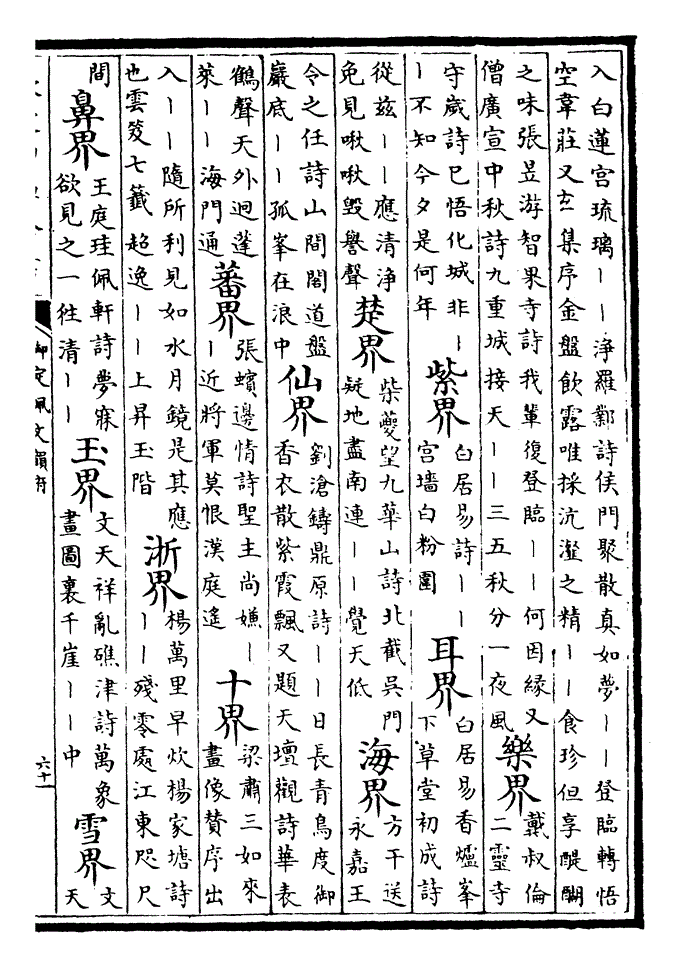 入白蓮宮琉璃――淨羅鄴詩侯門聚散真如夢――登臨轉悟
空韋莊又玄集序金盤飲露唯採沆瀣之精――食珍但享醍醐
之味張昱游智果寺詩我輩復登臨――何因緣又
僧廣宣中秋詩九重城接天――三五秋分一夜風
樂界
戴叔倫
二靈寺
守歲詩已悟化城非―
―不知今夕是何年
紫界
白居易詩――
宮墻白粉圍
耳界
白居易香爐峯
下草堂初成詩
從兹――應清淨
免見啾啾毀譽聲
楚界
柴夔望九華山詩北截吳門
疑地盡南連――覺天低
海界
方干送
永嘉王
令之任詩山間閣道盤
巖底――孤峯在浪中
仙界
劉滄鑄鼎原詩――日長青鳥度御
香衣散紫霞飄又題天壇觀詩華表
鶴聲天外迥蓬
萊――海門通
蕃界
張蠙邊情詩聖主尚嫌―
―近將軍莫恨漢庭遙
十界
梁肅三如來
畫像贊序出
入――隨所利見如水月鏡是其應
也雲笈七籤超逸――上昇玉階
浙界
楊萬里早炊楊家塘詩
――殘零處江東咫尺
間
鼻界
王庭珪佩軒詩夢寐
欲見之一往清――
玉界
文天祥亂礁津詩萬象
畫圖裏千崖――中
雪界
文
天
御定佩文韻府
六十一